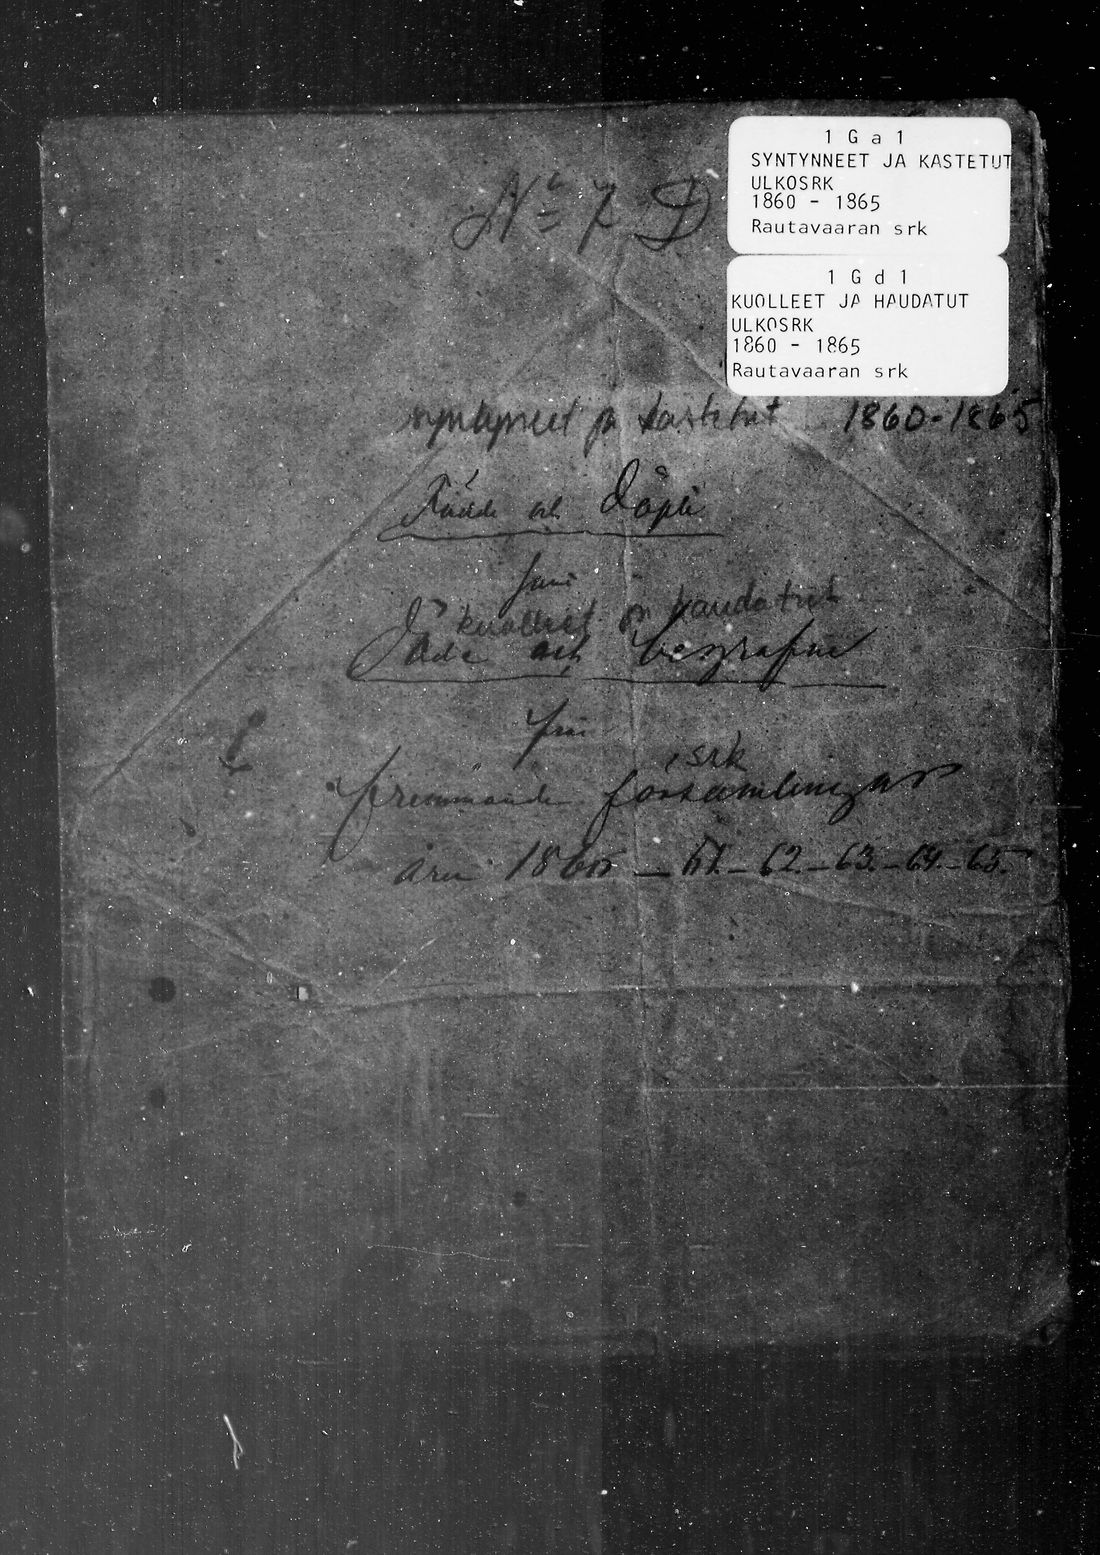 1 G a 1
SYNTYNNEET JA KASTETUT
ULKOSRK
1860 - 1865
Rautavaaran srk
No 7 D
1 G d 1
KUOLLEET JA HAUDATUT
ULKOSRK
1860 - 1865
Rautavaaran srk
syntyneet ja kastetut 1860-1865
Födde och Döpte
kuolleet ja haudatut
Döde och begrafne
srk
främmande församlingar
åren 1860 - 61 - 62 - 63 - 64 - 65.